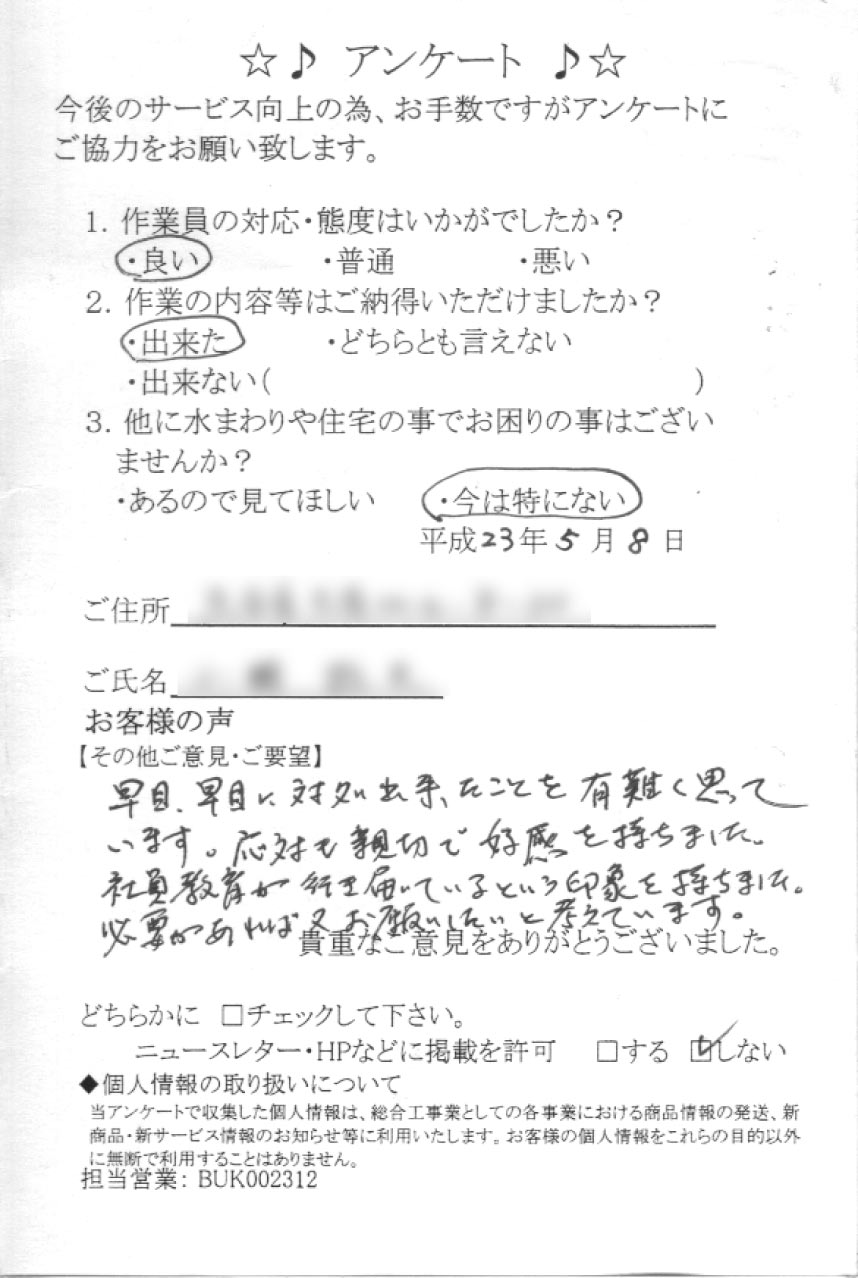 ☆♪ アンケート ♪☆
今後のサービス向上の為、お手数ですがアンケートに
ご協力をお願い致します。
1. 作業員の対応・態度はいかがでしたか？
・良い ・普通 ・悪い
2. 作業の内容等はご納得いただけましたか？
・出来た ・どちらとも言えない
・出来ない( )
3. 他に水まわりや住宅の事でお困りの事はござい
ませんか？
・あるので見てほしい ・今は特にない
平成23年5月8日
ご住所
ご氏名
お客様の声
【その他ご意見・ご要望】
早目、早目に対処出来たことを有難く思って
います。応対も親切で好感を持ちました。
社員教育が行き届いているという印象を持ちました。
必要があれば又お願いしたいと考えています。
貴重なご意見をありがとうございました。
どちらかに □チェックして下さい。
ニュースレター・HPなどに掲載を許可 □する ☑しない
◆個人情報の取り扱いについて
当アンケートで収集した個人情報は、総合工事業としての各事業における商品情報の発送、新
商品・新サービス情報のお知らせ等に利用いたします。お客様の個人情報をこれらの目的以外
に無断で利用することはありません。
担当営業: BUK002312